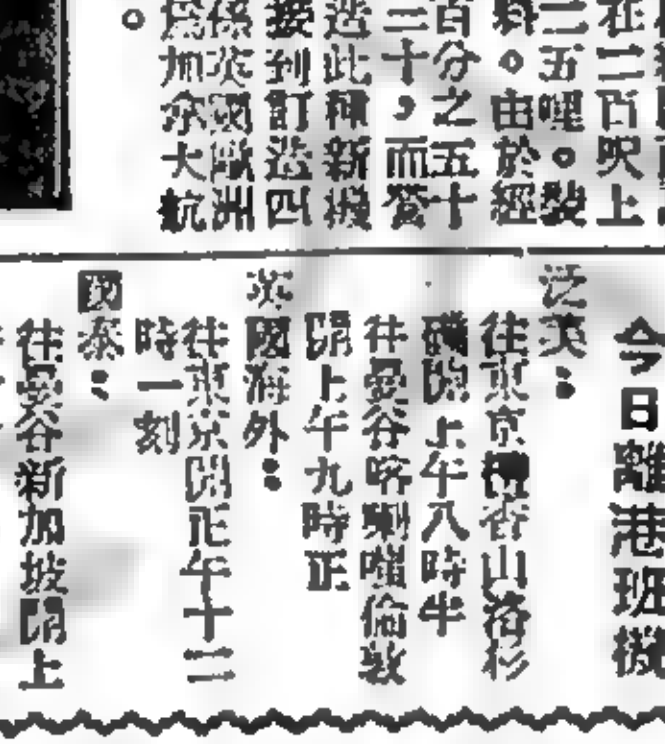 在二百呎上
二五哩。製
料。由於經
百分之五十
三十，而營
造此種新機
接到訂造四
係英國歐洲
爲加拿大航
。
今日離港班機
泛美：
往東京檀香山洛杉
磯開上午八時半
往曼谷喀喇嗤倫敦
開上午九時正
英國海外：
往東京開正午十二
時一刻
國泰：
往曼谷新加坡開上